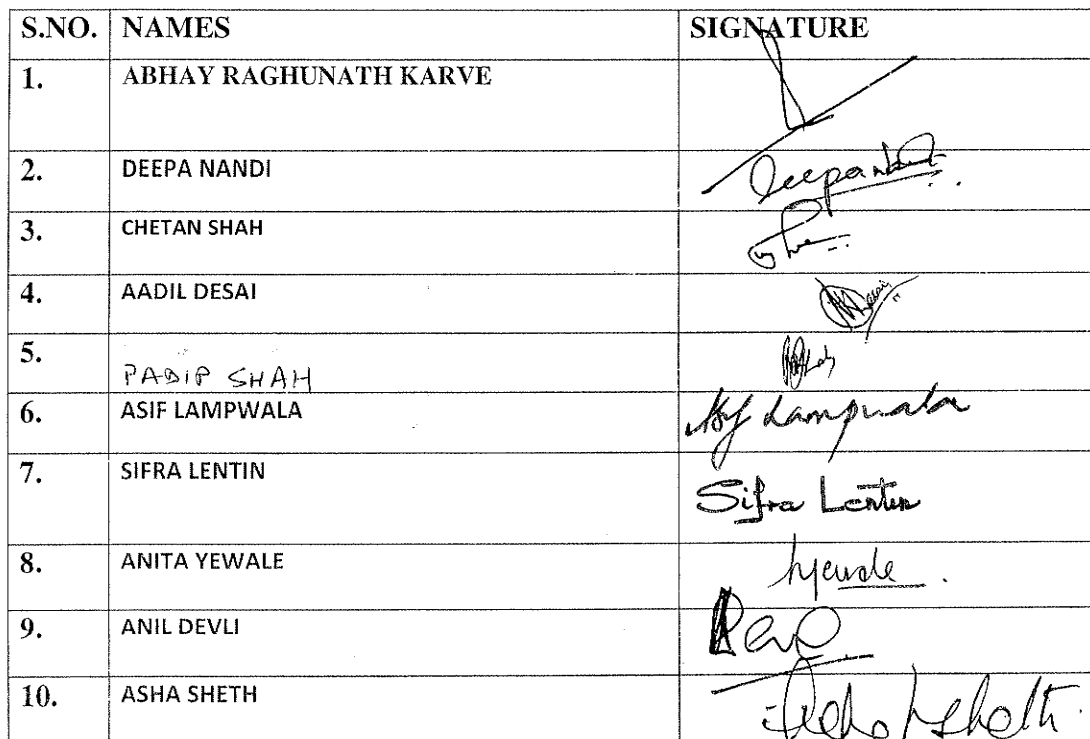 S.NO. NAMES SIGNATURE
1. ABHAY RAGHUNATH KARVE
2. DEEPA NANDI
3. CHETAN SHAH
4. AADIL DESAI
5. PADIP SHAH
6. ASIF LAMPWALA Lampwala
7. SIFRA LENTIN Sifra Lentin
8. ANITA YEWALE Ayewale.
9. ANIL DEVLI
10. ASHA SHETH